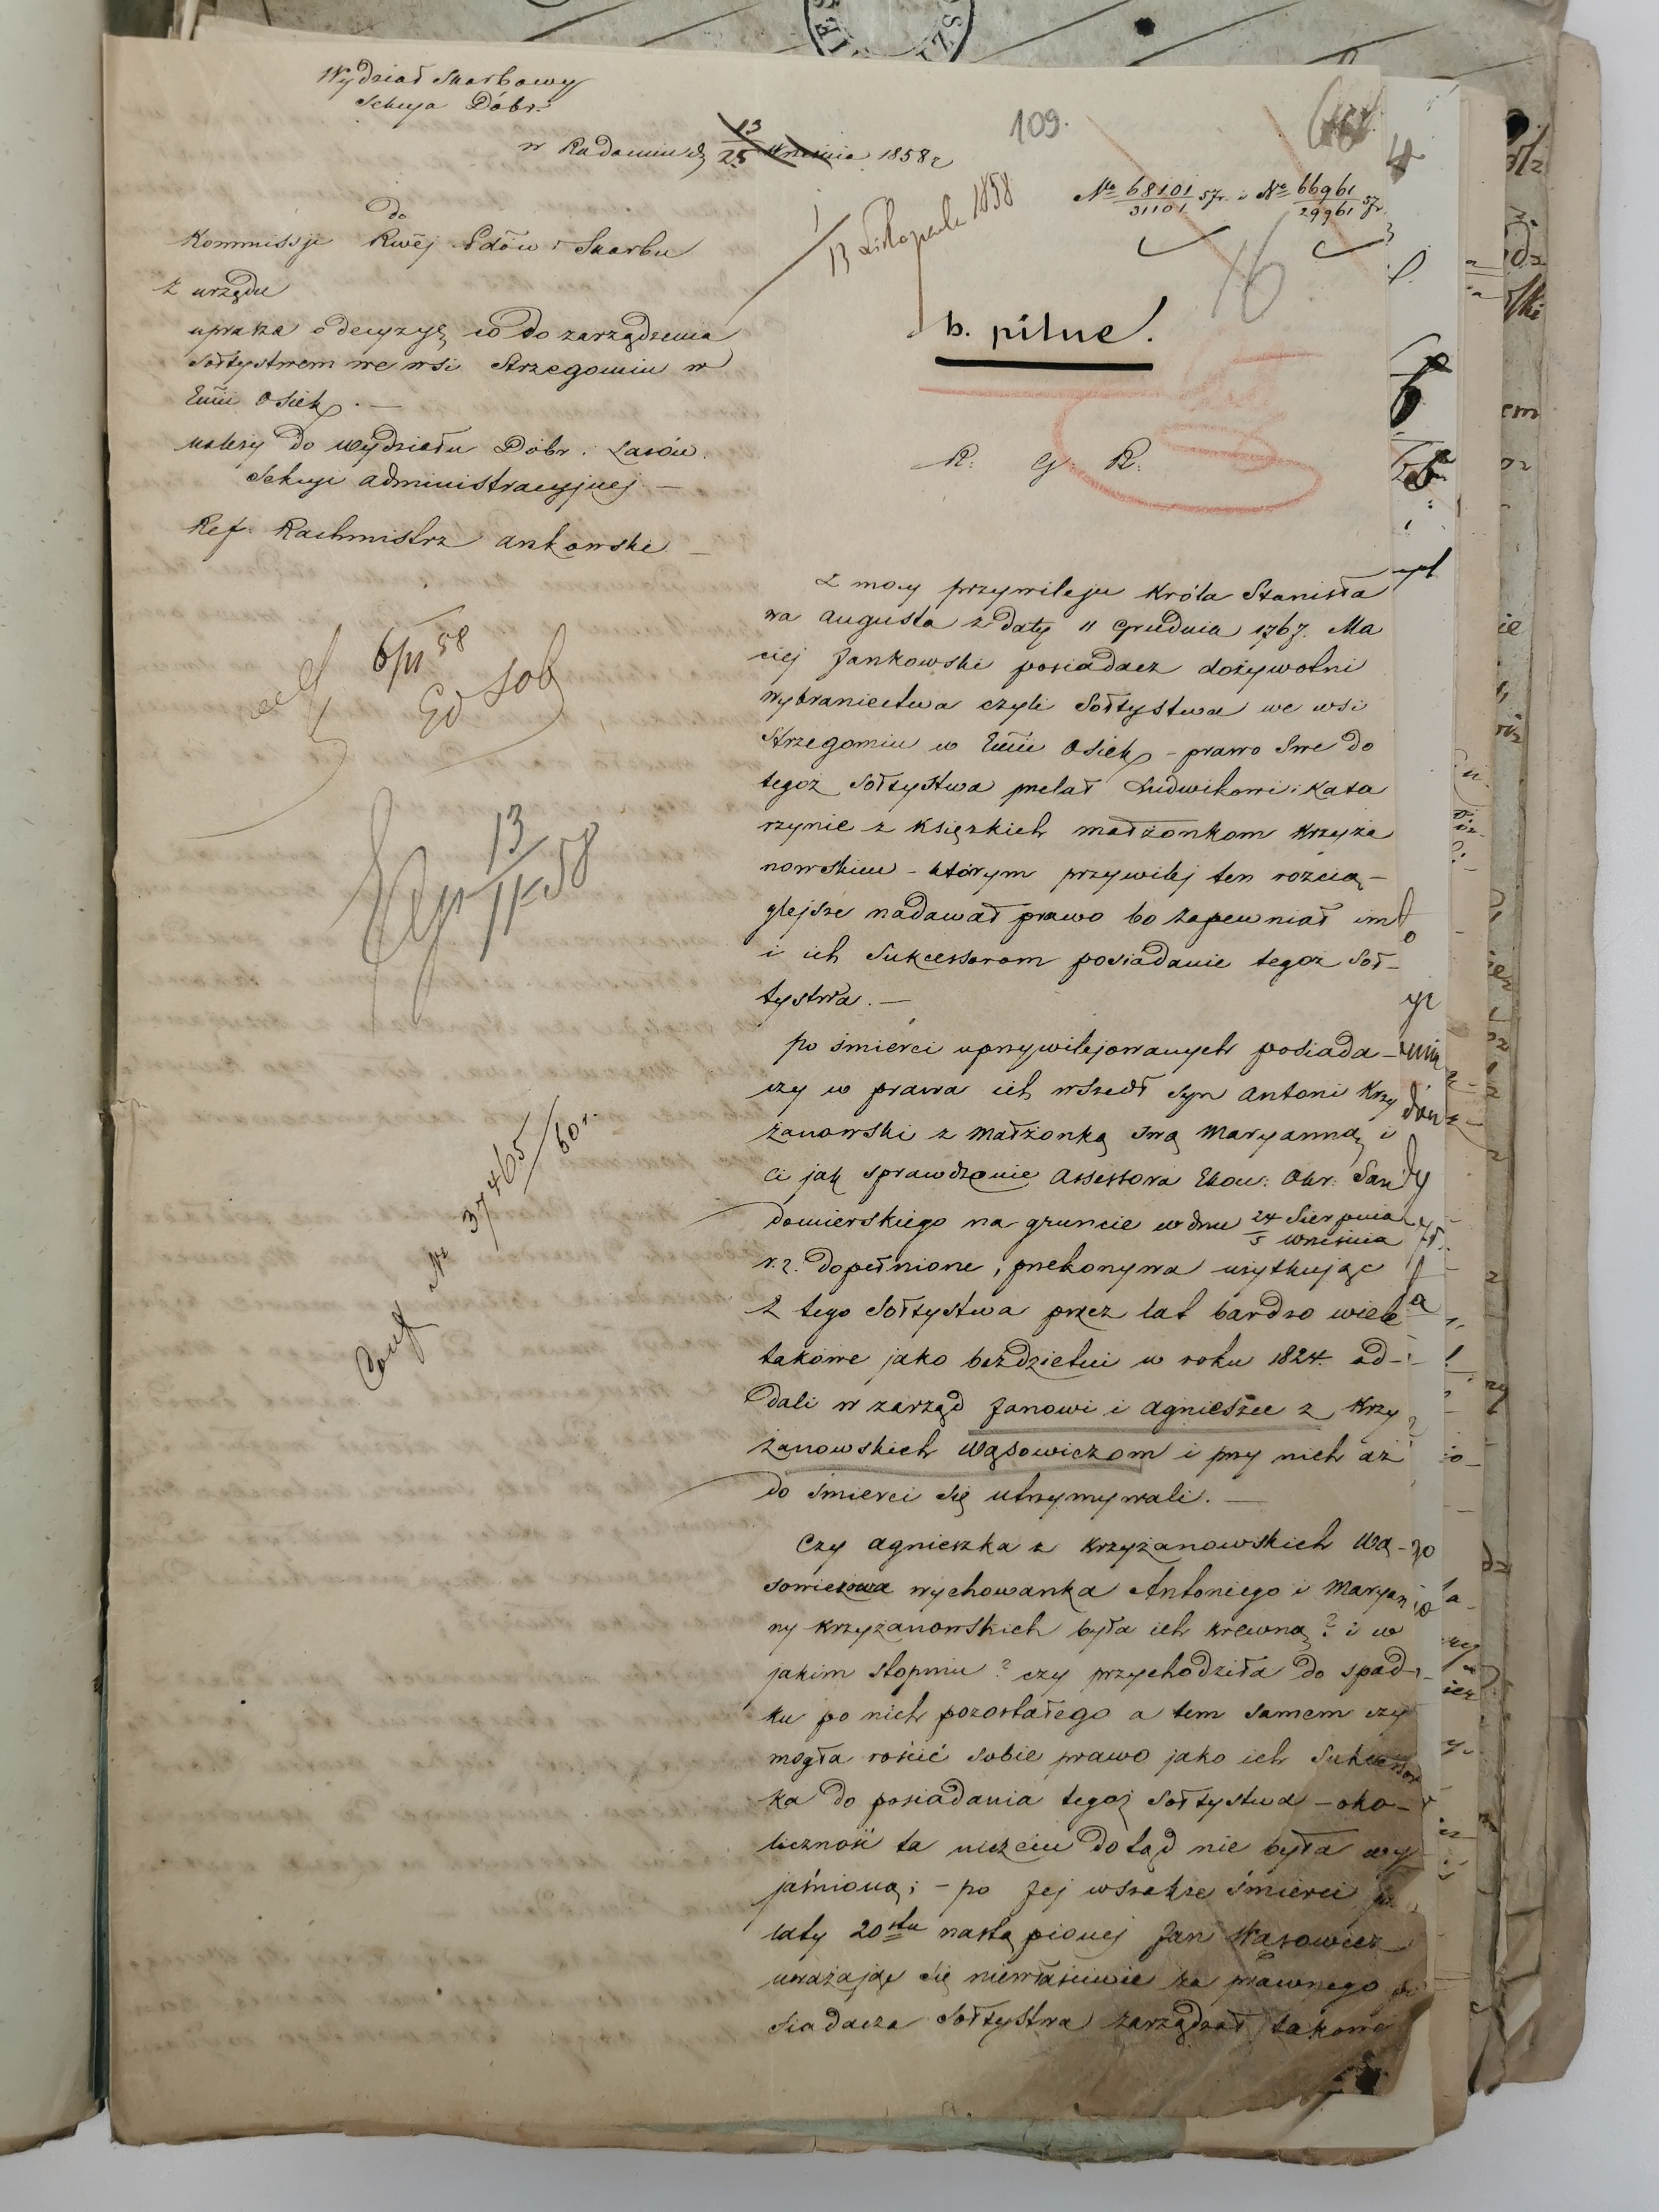 Wydział Skarbowy
Sekcya Dóbr.
109.
w Radomiu d. 13/25 Września 1858 r
13 Listopada 1858
No 68101/31101 57r. i No 66961/29961 57r.
16
do
Kommissji Rwej Pdów i Skarbu
z urzędu
uprasza o decyzyę co do zarządzenia
Sołtystwem we wsi Strzegomiu w
Emii Osiek. —
należy do Wydziału Dóbr i Lasów.
Sekcyi administracyjnej —
Ref. Rachmistrz Ankowski —
b. pilne!
R. G. R.
6/11 58
Ed Sob
Exp 13/11 58
Conf Nr 37465/60 r.
Z mocy przywileju Króla Stanisła
wa Augusta z daty 11 Grudnia 1767. Ma
ciej Jankowski posiadacz dożywotni
wybraniectwa czyli Sołtystwa we wsi
Strzegomiu w Emii Osiek – prawo Swe do
tegoż Sołtystwa przelał Ludwikowi i Kata
rzynie z Księzkich małżonkom Krzyża
nowskim – którym przywilej ten rozcią–
glejsze nadawał prawo bo zapewniał im
i ich Sukcessorom posiadanie tegoż Soł–
tystwa. —
po śmierci uprzywilejowanych posiada–
czy w prawa ich wszedł Syn Antoni Krzy
żanowski z Małżonką Swą Maryanną i
Ci jak sprawdzenie Assessora Ekon: Okr: San
domierskiego na gruncie w dniu 24 Sierpnia/5 Września
r. z. dopełnione, przekonywa użytkując
z tego Sołtystwa przez lat bardzo wiele
takowe jako bezdzietni w roku 1824 od–
dali w zarząd Janowi i Agnieszce z Krzy
żanowskich Wąsowiczom i przy nich aż
do śmierci się utrzymywali. —
Czy Agnieszka z Krzyżanowskich Wą–
sowiczowa wychowanka Antoniego i Maryan
ny Krzyżanowskich była ich krewną? i w
jakim stopniu? czy przychodziła do spad–
ku po nich pozostałego a tem samem czy
mogła rościć sobie prawo jako ich Sukcessor
ka do posiadania tegoż Sołtystwa – oko–
liczność ta niczem dotąd nie była wy
jaśnioną; – po Jej wszakże śmierci
laty 20stu nastąpionej Jan Wąsowicz
uważając się niewłaściwie za prawnego po
siadacza Sołtystwa zarządzał takowe